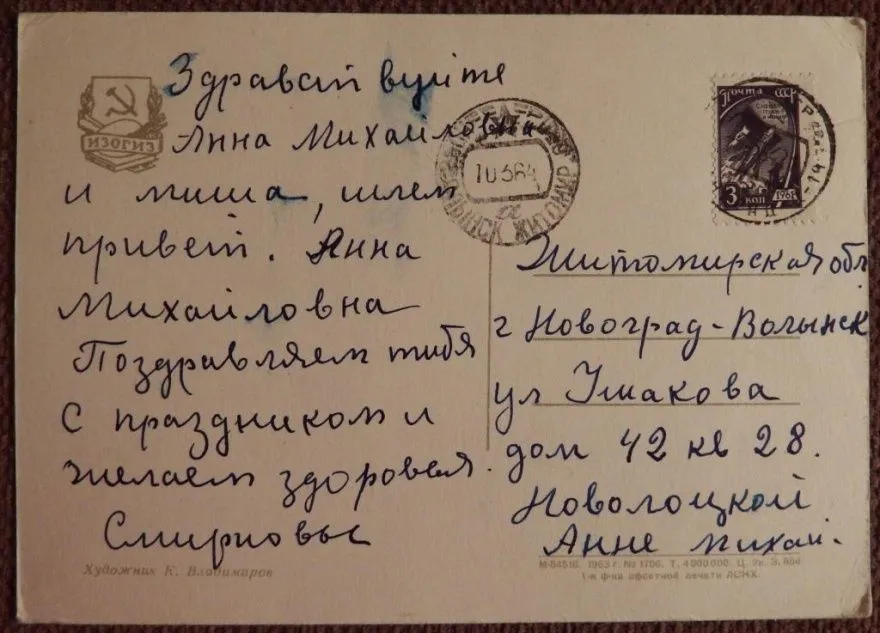 Здравствуйте
Анна Михайловна
и миша, шлем
привет. Анна
Михайловна
Поздравляем тибя
с праздником и
желаем здоровья.
Смирновы
ИЗОГИЗ
Художник К. Владимиров
10364
ЖИТОМИР
Почта СССР
3 коп 1961
Житомирская обл
г Новоград-Волынск
ул Ушакова
дом 42 кв 28.
Новолоцкой
Анне михай.
М-54516. 1963 г. № 1706. Т. 4 000 000. Ц. 3к. З. 884
1-я ф-ка офсетной печати ЛСНХ.